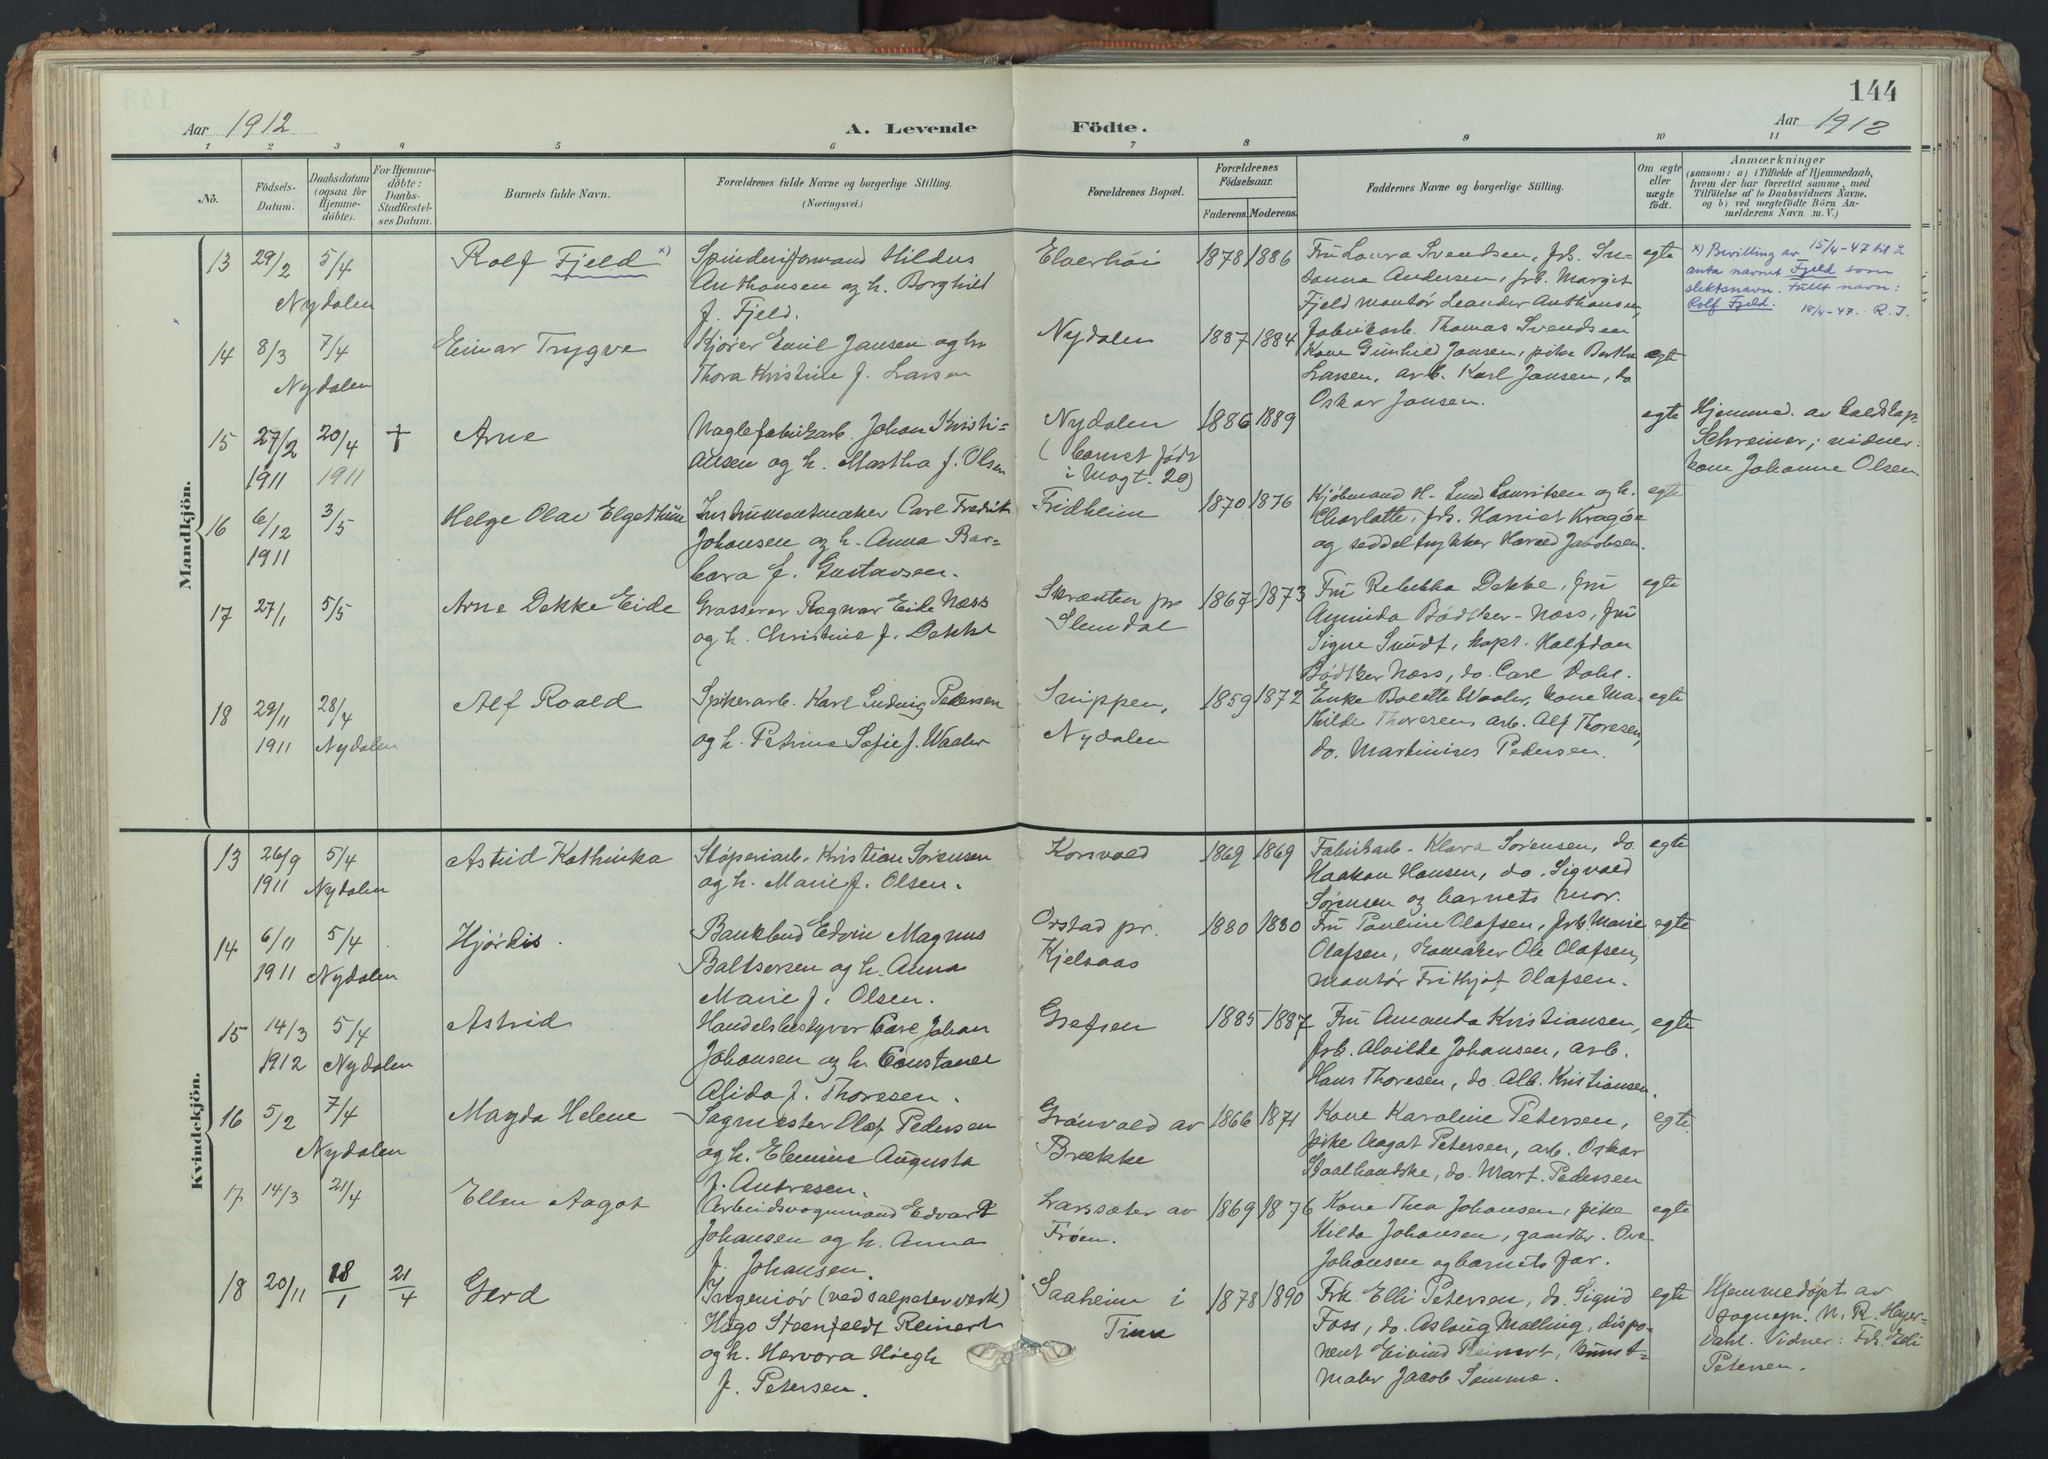 144
Aar 1912 A. Levende Födte. Aar 1912
1 2 3 4 5 6 7 8 9 10 11
No. Födsels-Datum. Daabsdatum (ogsaa for Hjemmedöbte). For Hjemmedöbte: Daabs-Stadfæstelses Datum. Barnets fulde Navn. Forældrenes fulde Navne og borgerlige Stilling. (Næringsvei.) Forældrenes Bopæl. Forældrenes Födselsaar. Faderens. Moderens. Faddernes Navne og borgerlige Stilling. Om ægte eller uægte födt. Anmærkninger (saasom: a) i Tilfælde af Hjemmedaab, hvem der har forrettet samme, med Tilföielse af to Daabsvidners Navne, og b) ved uægtefödte Börn Anmelderens Navn m. V.)
Mandkjön.
13 29/2 5/4 Rolf Fjeld x) Spinderiformand Hildus Elverhöi 1878 1886 Fru Laura Svendsen, frk. Su- egte x) Bevilling av 15/4-47 til å
Anthonsen og h. Borghild sanna Andersen, frk. Margit anta navnet Fjeld som
Nydalen f. Fjeld. Fjeld montör Leander Anthonsen, slektsnavn. Fullt navn:
Rolf Fjeld. 18/4-47. R. J.
14 8/3 7/4 Einar Trygve Kjører Emil Jansen og h. Nydalen 1887 1884 fabrikarb. Thomas Svendsen egte
Nydalen Thora Kristine f. Larsen Kone Gunhild Jansen, pike Bertha
Larsen, arb. Karl Jansen, do.
Oskar Jansen.
15 27/2 20/4 † Arne Naglefabrikarb. Johan Kristi- Nydalen 1886 1889 egte Hjemmed. av
1911 1911 ansen og h. Martha f. Olsen (barnet født Schreiner; vidner:
i Magt. 20) kone Johanne Olsen
16 6/12 3/5 Helge Olav Elgethun Instrumentmaker Carl Fredrik Fridheim 1870 1876 Kjøbmand H. Lund Lauritsen og h. egte
1911 Johansen og h. Anna Bar- Charlotte, frk. Harriet Kragøe
bara f. Gustavsen. og seddeltrykker Harald Jakobsen.
17 27/1 5/5 Arne Dekke Eide Grosserer Ragnar Eide Næss Skrænten pr. 1867 1873 Fru Rebekka Dekke, fru egte
og h. Christine f. Dekke Slemdal Aminda Bødtker-Næss, fru
Signe Sundt, kapt. Halfdan
Bødtker Næss, do. Carl Dahl.
18 29/11 28/4 Alf Roald Spikerarb. Karl Ludvig Pedersen Snippen, 1859 1872 Enke Bolette Waaler, kone Ma- egte
1911 Nydalen og h. Petrine Sofie f. Waaler Nydalen thilde Thoresen, arb. Alf Thoresen,
do. Martinius Pedersen.
Kvindekjön.
13 26/9 5/4 Astrid Kathinka Støperiarb. Kristian Sørensen Korsvold 1869 1869 Fabrikarb. Klara Sørensen, do. egte
1911 Nydalen og h. Marie f. Olsen. Haakon Hansen, do. Sigvald
Sørensen og barnets mor.
14 6/11 5/4 Hjördis. Bankbud Edvin Magnus Orstad pr. 1880 1880 Fru Pauline Olafsen, frk. Marie egte
1911 Nydalen Baltsersen og h. Anna Kjelsaas Olafsen, skomaker Ole Olafsen,
Marie f. Olsen. montör Frithjof Olafsen.
15 14/3 5/4 Astrid Handelsbestyrer Carl Johan Grefsen 1885 1887 Fru Amanda Kristiansen, egte
1912 Nydalen Johansen og h. Constance frk. Alvilde Johansen, arb.
Alida f. Thoresen. Hans Thoresen, do. Alb. Kristiansen.
16 5/2 7/4 Magda Helene Sagmester Olaf Pedersen Grønvold av 1866 1871 Kone Karoline Petersen, egte.
Nydalen og h. Elemine Augusta Brække pike Aagot Petersen, arb. Oskar
f. Andresen. Staalhandske, do. Mart. Pedersen
17 14/3 21/4 Ellen Aagot Arbeidsvognmand Edvard Larssæter av 1869 1876 Kone Thea Johansen, pike egte
Johansen og h. Anna Frøen. Hilda Johansen, gaardbr. Ove
f. Johansen. Johansen og barnets far.
18 20/11 18/1 21/4 Gerd Ingeniör (ved salpeterverk) Saaheim i 1878 1890 Frk. Elli Petersen, do. Sigrid egte Hjemmedøpt av
Hugo Steenfeldt Reinert Tinn Foss, do. Aslaug Malling, dispo- sognepr. N. R. Heyer-
og h. Hervora Høegh nent Eivind Reinert, kunst- dahl. Vidner: Frk. Elli
f. Petersen. maler Jacob Sømme. Petersen.